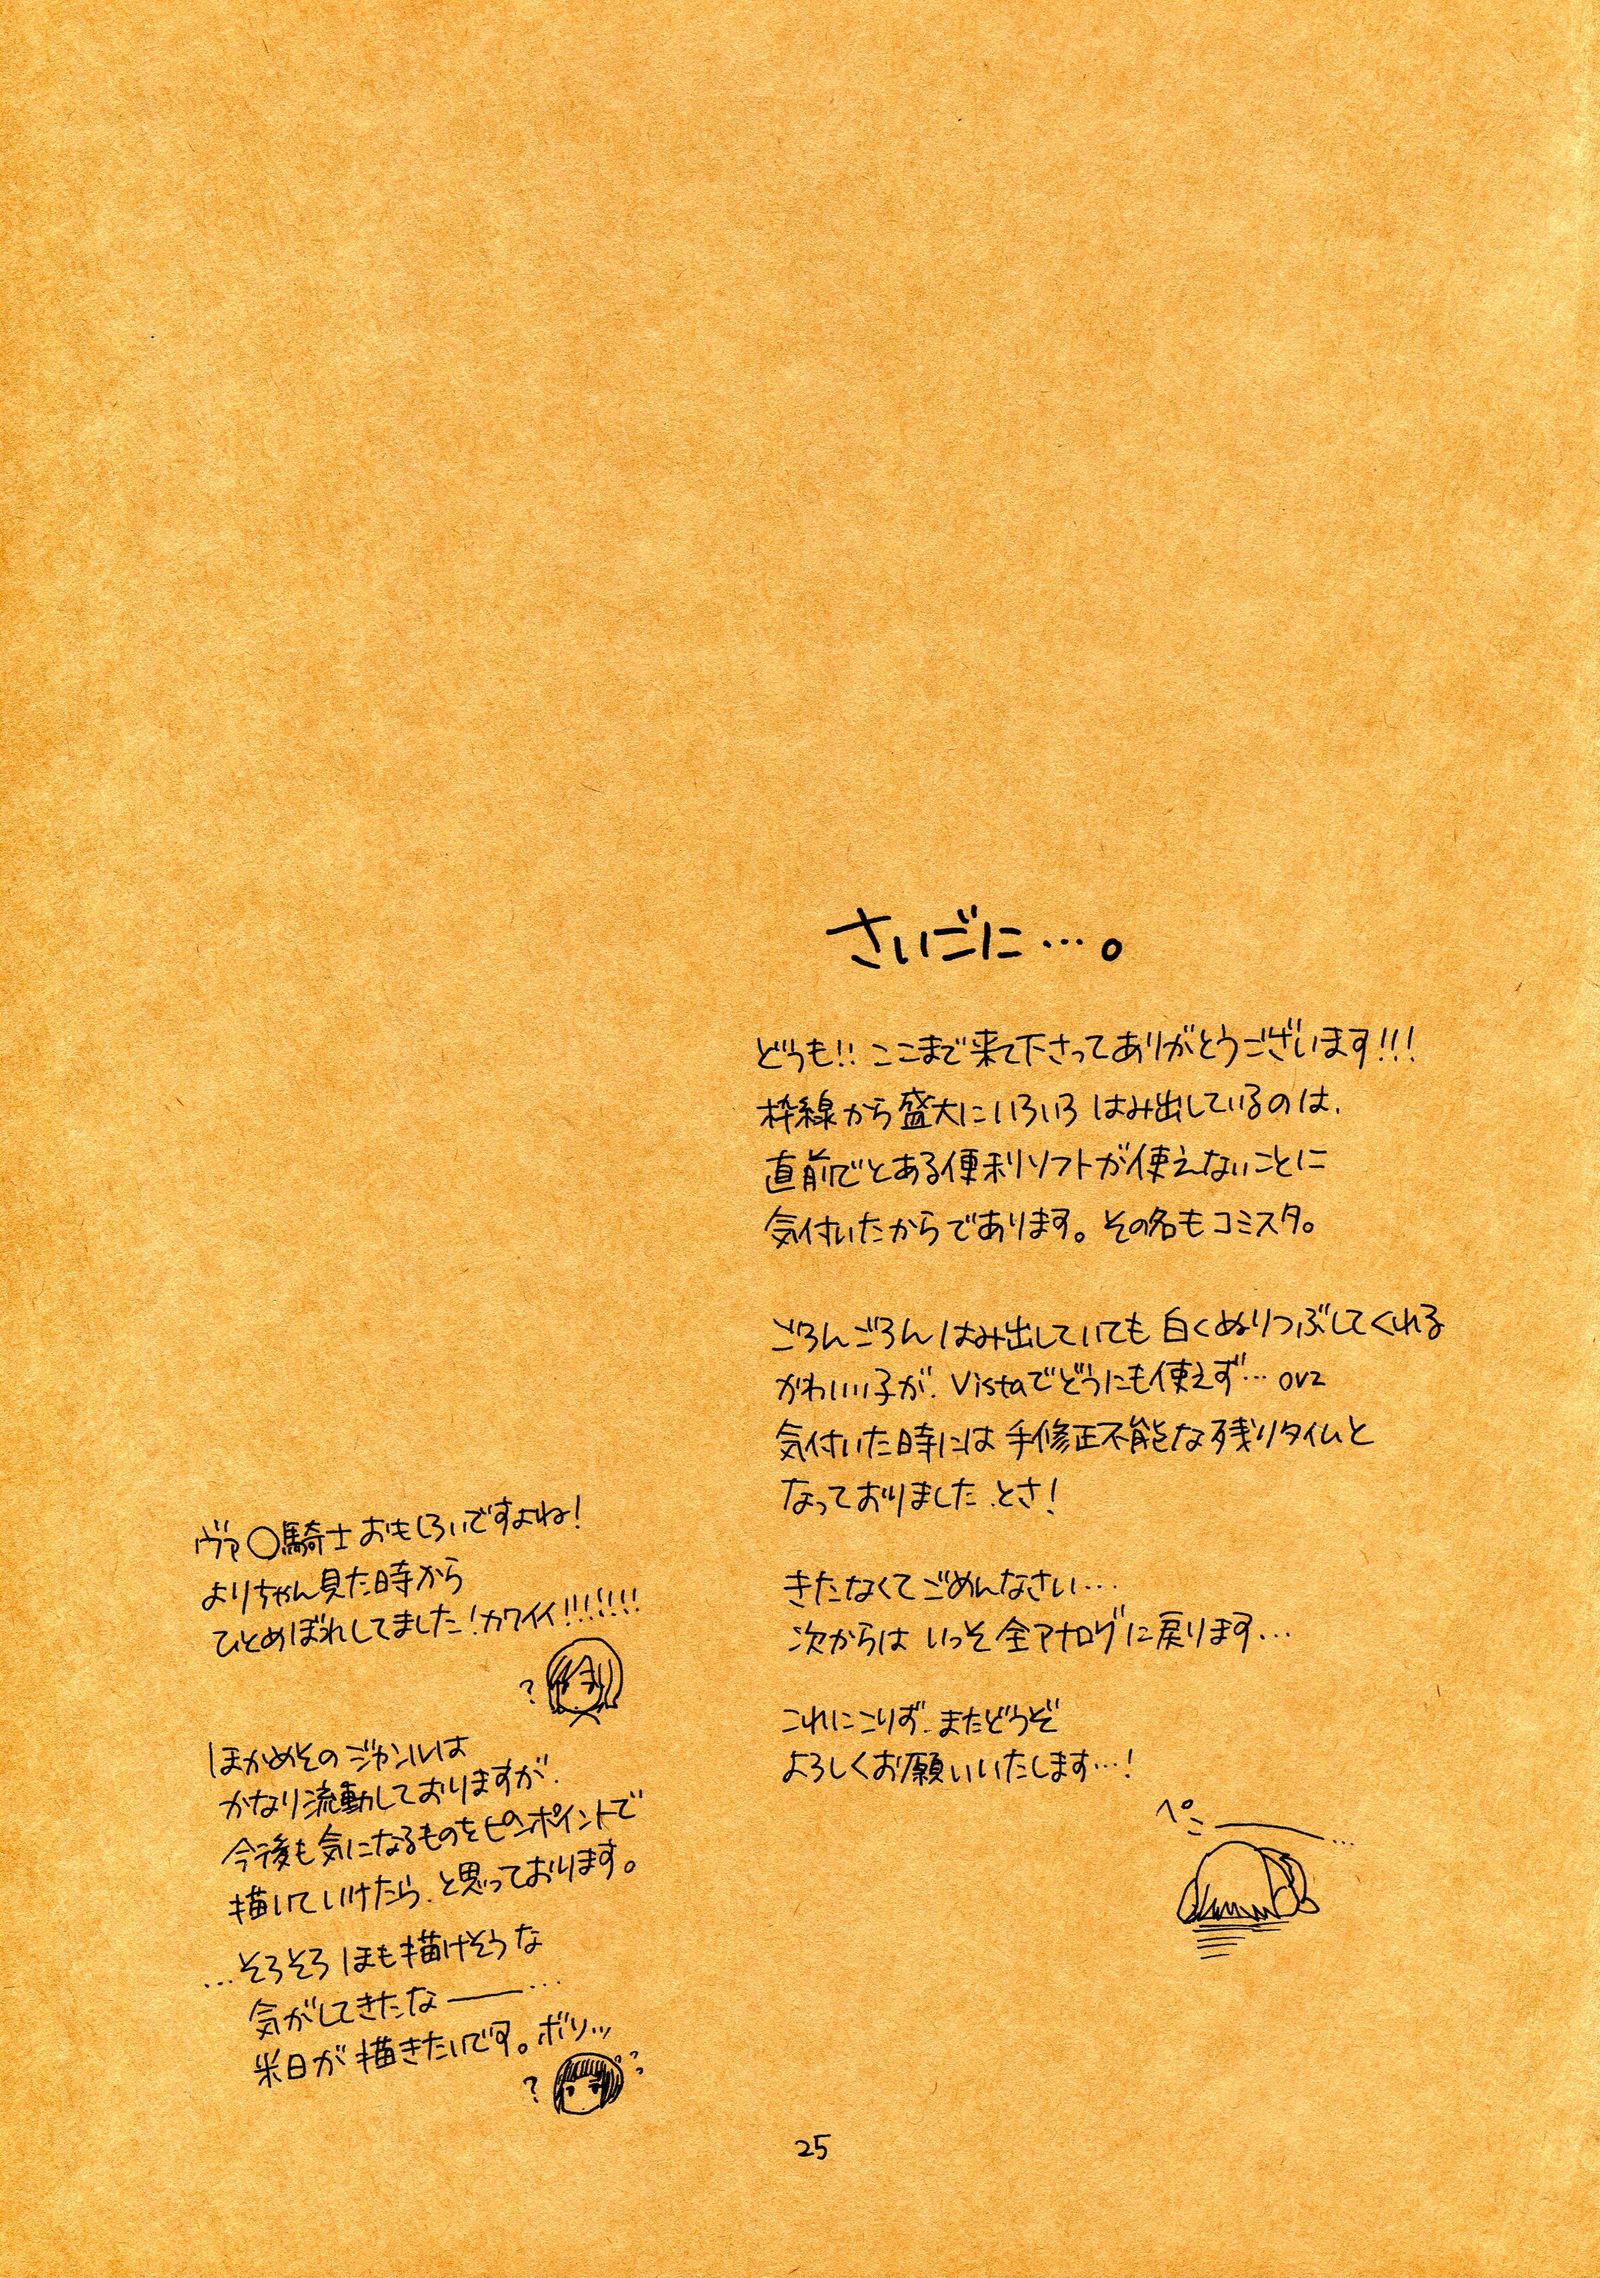 さいごに…。
どうも!! ここまで来て下さってありがとうございます!!!
枠線から盛大にいろいろ はみ出しているのは、
直前でとある便利ソフトが使えないことに
気付いたからであります。その名もコミスタ。
ごろんごろん はみ出していても 白くぬりつぶしてくれる
かわいい子が、Vistaでどうにも使えず… orz
気付いた時には 手修正不能な残りタイムと
なっておりました、とさ!
きたなくてごめんなさい…
次からは いっそ 全アナログに戻ります…
これにこりず、またどうぞ
よろしくお願いいたします…!
ペこ――…
ヴァ○騎士おもしろいですよね!
よりちゃん見た時から
ひとめぼれしてました!カワイイ!!!!!!!
?
ほかめその ジャンルは
かなり流動しておりますが、
今後も気になるものをピンポイントで
描いていけたら、と思っております。
…そろそろ ほも描けそうな
気がしてきたな――…
米日が描きたいです。ボソッ
? ??
25